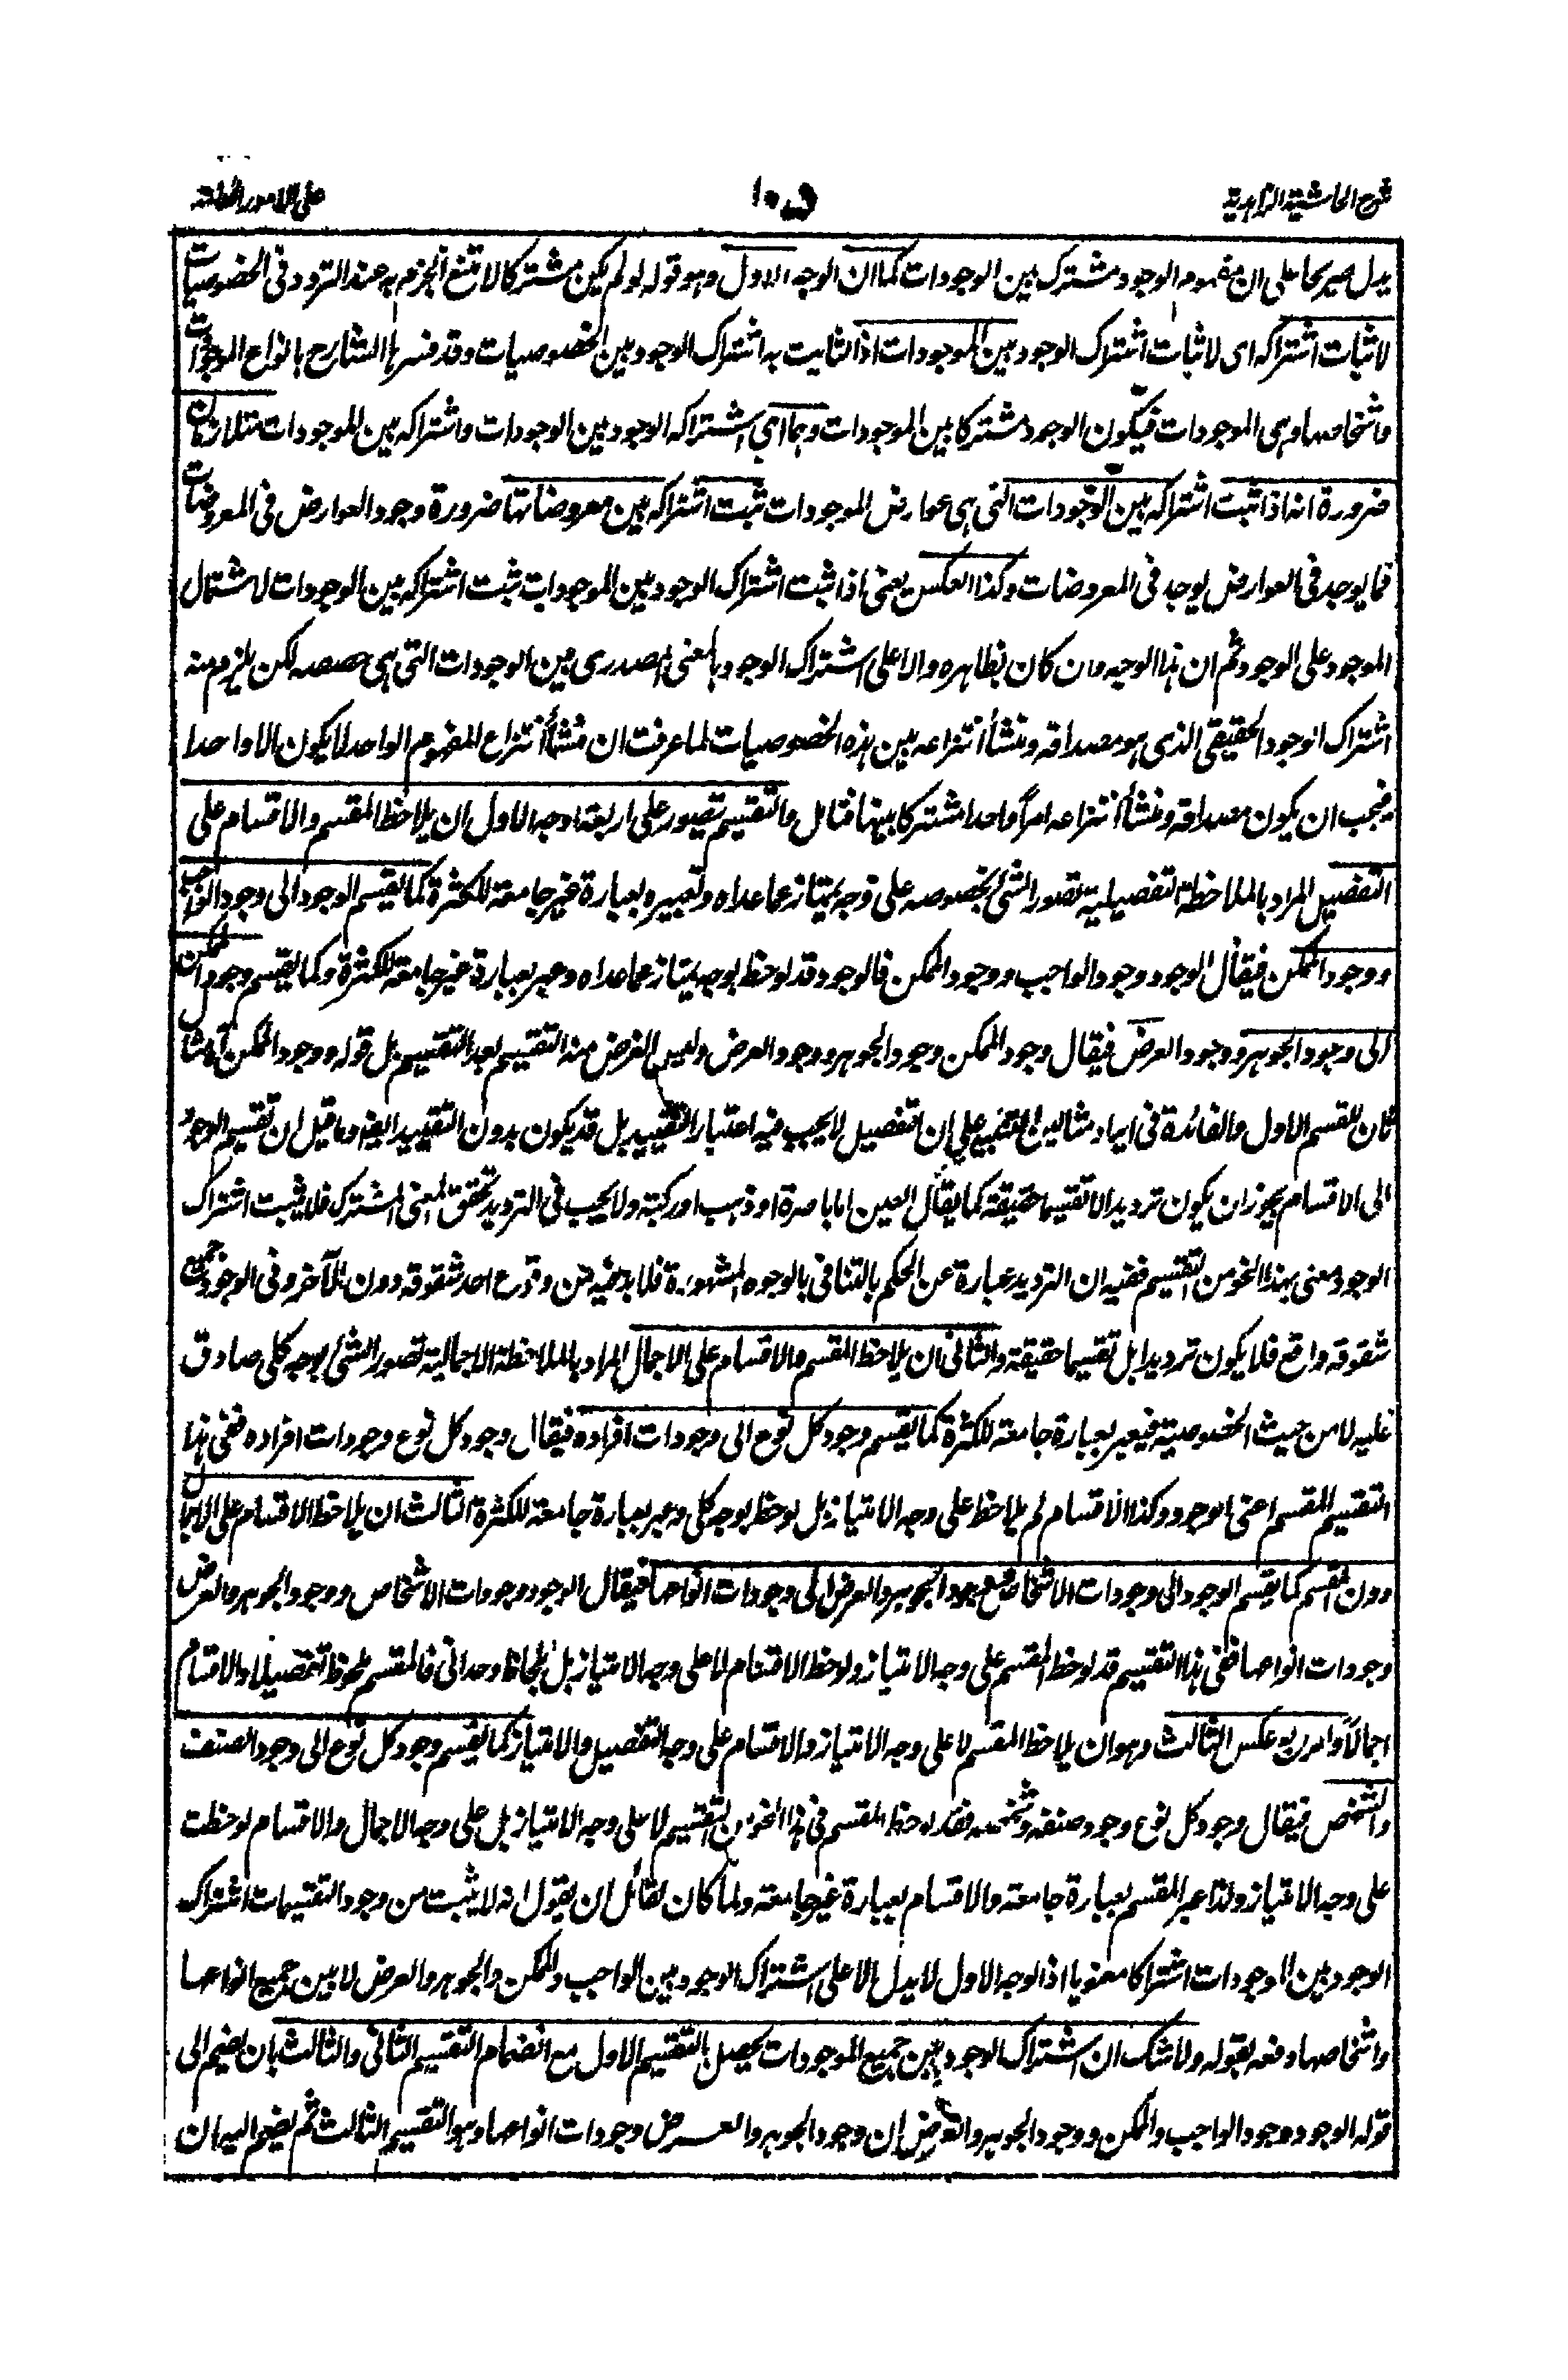 شرح الحاشية الزاهدية
١٠٥
على الامور العامة
يدل صريحا على ان مفهوم الوجود مشترك بين الوجودات كما ان الوجه الاول وهو قوله لو لم يكن مشتركا لامتنع الجزم به عند التردد فى الخصوصيات
لاثبات اشتراكه اى لاثبات اشتراك الوجود بين الموجودات اذ الثابت به اشتراك الوجود بين الخصوصيات وقد فسرها الشارح بانواع الموجودات
واشخاصها وهى الموجودات فيكون الوجود مشتركا بين الموجودات وهما اى اشتراكه الوجود بين الوجودات واشتراكه بين الموجودات متلازمان
ضرورة انه اذا ثبت اشتراكه بين الوجودات التى هى عوارض الموجودات ثبت اشتراكه بين معروضاتها ضرورة وجود العوارض فى المعروضات
فما يوجد فى العوارض يوجد فى المعروضات وكذا العكس يعنى اذا ثبت اشتراك الوجود بين الموجودات ثبت اشتراكه بين الوجودات لاشتمال
الموجود على الوجود ثم ان هذا الوجه وان كان بظاهره دالا على اشتراك الوجود بالمعنى المصدرى بين الوجودات التى هى حصصه لكن يلزم منه
اشتراك الوجود الحقيقى الذى هو مصداقه ومنشأ انتزاعه بين هذه الخصوصيات لما عرفت ان منشأ انتزاع المفهوم الواحد لا يكون الا واحدا
فيجب ان يكون مصداقه ومنشأ انتزاعه امرا واحدا مشتركا بينها فتامل والتقسيم تصور على اربعة اوجه الاول ان يلاحظ المقسم والاقسام على
التفصيل المراد بالملاحظة التفصيلية تصور الشئ بخصوصه على وجه يمتاز عما عداه وتعبيره بعبارة غير جامعة للكثرة كما يقسم الوجود الى وجود الواجب
ووجود الممكن فيقال الوجود وجود الواجب ووجود الممكن فالوجود قد لوحظ بوجه يمتاز عما عداه وعبر بعبارة غير جامعة للكثرة وكما يقسم وجود الممكن
الى وجود الجوهر ووجود العرض فيقال وجود الممكن وجود الجوهر ووجود العرض وليس الغرض منه التقسيم بعد التقسيم بل قوله ووجود الممكن آه مثال
ثان للقسم الاول والفائدة فى ايراد مثالين التنبيه على ان التفصيل لا يجب فيه اعتبار التقييد بل قد يكون بدون التقييد ايضا وما قيل ان تقسيم الوجود
الى الاقسام يجوز ان يكون ترديدا لا تقسيما حقيقة كما يقال العين اما باصرة او ذهب او ركبة ولا يجب فى الترديد تحقق المعنى المشترك فلا يثبت اشتراك
الوجود معنى بهذا النحو من التقسيم ففيه ان الترديد عبارة عن الحكم بالتنافى بالوجوه المشهورة فلا بد فيه من وقوع احد شقوقه دون الآخر وفى الوجود جميع
شقوقه واقع فلا يكون ترديدا بل تقسيما حقيقة والثانى ان يلاحظ المقسم والاقسام على الاجمال المراد بالملاحظة الاجمالية تصور الشئ بوجه كلى صادق
عليه لا من حيث الخصوصية فيعبر بعبارة جامعة للكثرة كما يقسم وجود كل نوع الى وجودات افراده فيقال وجود كل نوع وجودات افراده ففى هذا
التقسيم المقسم اعنى الوجود وكذا الاقسام لم يلاحظ على وجه الامتياز بل لوحظ بوجه كلى وعبر بعبارة جامعة للكثرة الثالث ان يلاحظ الاقسام على الاجمال
دون المقسم كما يقسم الوجود الى وجودات الاشخاص ووجود الجوهر والعرض الى وجودات انواعها فيقال الوجود وجودات الاشخاص ووجود الجوهر والعرض
وجودات انواعها ففى هذا التقسيم قد لوحظ المقسم على وجه الامتياز ولوحظ الاقسام لا على وجه الامتياز بل لحاظا وحدانى فالمقسم ملحوظ تفصيلا والاقسام
اجمالا والرابع عكس الثالث وهو ان يلاحظ المقسم لا على وجه الامتياز والاقسام على وجه التفصيل والامتياز كما يقسم وجود كل نوع الى وجود الصنف
والشخص فيقال وجود كل نوع وجود صنفه وشخصه فقد لوحظ المقسم فى هذا النحو من التقسيم لا على وجه الامتياز بل على وجه الاجمال والاقسام لوحظت
على وجه الامتياز ولذا عبر المقسم بعبارة جامعة والاقسام بعبارة غير جامعة ولما كان لقائل ان يقول انه لا يثبت من وجود التقسيمات اشتراك
الوجود بين الوجودات اشتراكا معنويا اذ الوجه الاول لا يدل الا على اشتراك الوجود بين الواجب والممكن والجوهر والعرض لا بين جميع انواعها
واشخاصها دفعه بقوله ولا شك ان اشتراك الوجود بين جميع الموجودات يحصل بالتقسيم الاول مع انضمام التقسيم الثانى والثالث بان يضم الى
قوله الوجود وجود الواجب والممكن ووجود الجوهر والعرض ان وجود الجوهر والعرض وجودات انواعها وهو التقسيم الثالث ثم يضم اليه ان